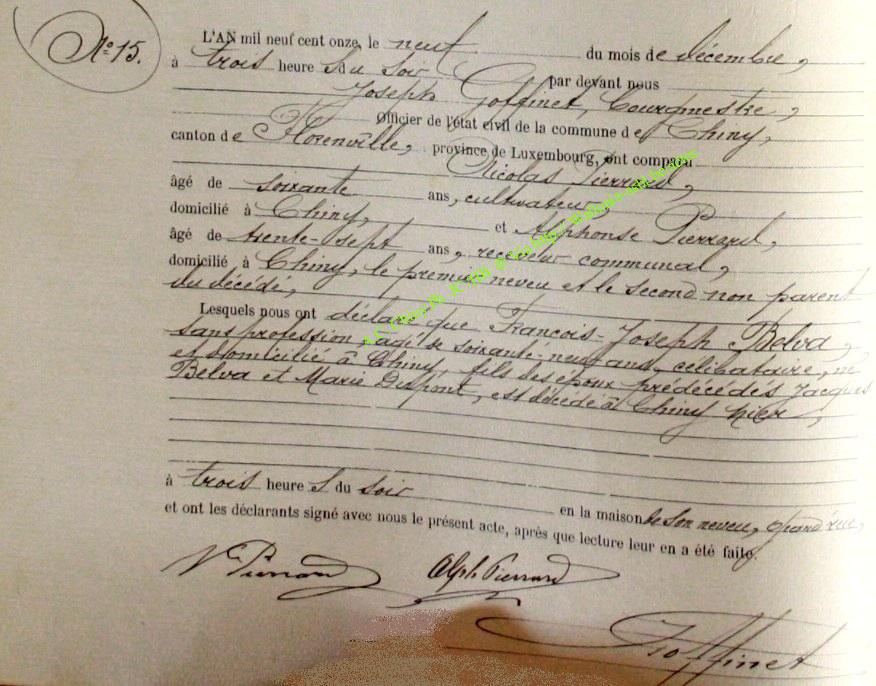 N° 15.
L'AN mil neuf cent onze, le neuf du mois de décembre,
à trois heure s du soir par devant nous
Joseph Goffinet, Bourgmestre,
Officier de l'état civil de la commune de Chiny,
canton de Florenville, province de Luxembourg, ont comparu
Nicolas Pierrard,
âgé de soixante ans, cultivateur,
domicilié à Chiny, et Alphonse Pierrard,
âgé de trente-sept ans, receveur communal,
domicilié à Chiny, le premier neveu et le second non parent
du décédé,
Lesquels nous ont déclaré que François-Joseph Belva,
sans profession, âgé de soixante-neuf ans, célibataire, né
et domicilié à Chiny, fils des époux prédécédés Jacques
Belva et Marie Dupont, est décédé à Chiny hier,
à trois heure s du soir en la maison de son neveu, grand'rue,
et ont les déclarants signé avec nous le présent acte, après que lecture leur en a été faite.
Pierrard Alph. Pierrard
Goffinet